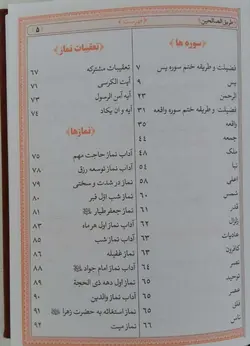 طریق الصالحین
فهرست
۵
﴿سوره ها﴾
فضیلت و طریقه ختم سوره یس ۷
یس ۹
الرحمن ۲۳
فضیلت و طریقه ختم سوره واقعه ۳۱
واقعه ۳۵
جمعه ۴۴
ملک ۴۸
نبا ۵۴
اعلی ۵۸
شمس
قدر ۶۱
زلزال
عادیات
کافرون ۶۳
نصر ۶۴
توحید
عصر
فلق ۶۵
ناس ۶۶
﴿تعقیبات نماز﴾
تعقیبات مشترکه ۶۷
آیت الکرسی ۷۱
آیه آمن الرسول ۷۳
آیه و ان یکاد ۷۴
﴿نمازها﴾
آداب نماز حاجت مهم ۷۵
آداب نماز توسعه رزق ۷۸
نماز در شدت و سختی ۷۹
نماز شب اوّل قبر ۸۰
نماز جعفر طیار ۸۱
آداب نماز اول هر ماه ۸۳
آداب نماز شب ۸۵
نماز غفیله ۸۶
آداب نماز امام جواد ۸۸
نماز اول دهه ذی الحجة ۸۹
آداب نماز والدین ۹۰
نماز استغاثه به حضرت زهرا ۹۱
نماز میت ۹۲